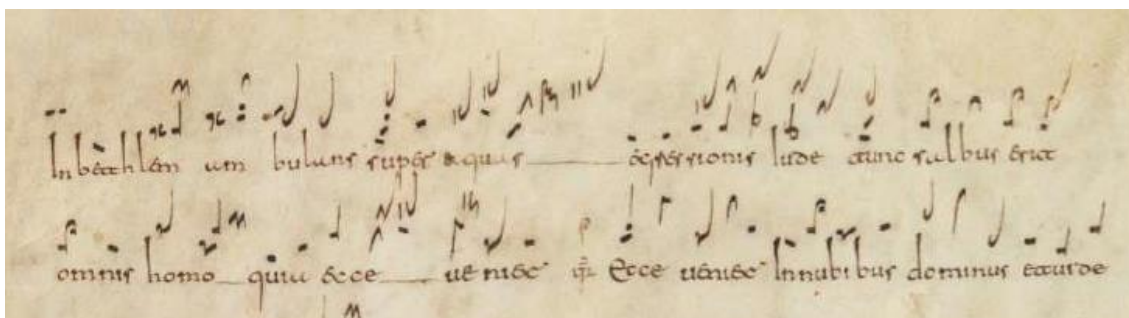 In bethlem am bulans super aquas iude tunc salbus erit
omnis homo quia ecce ueniet Ecce ueniet In nubibus dominus et arde